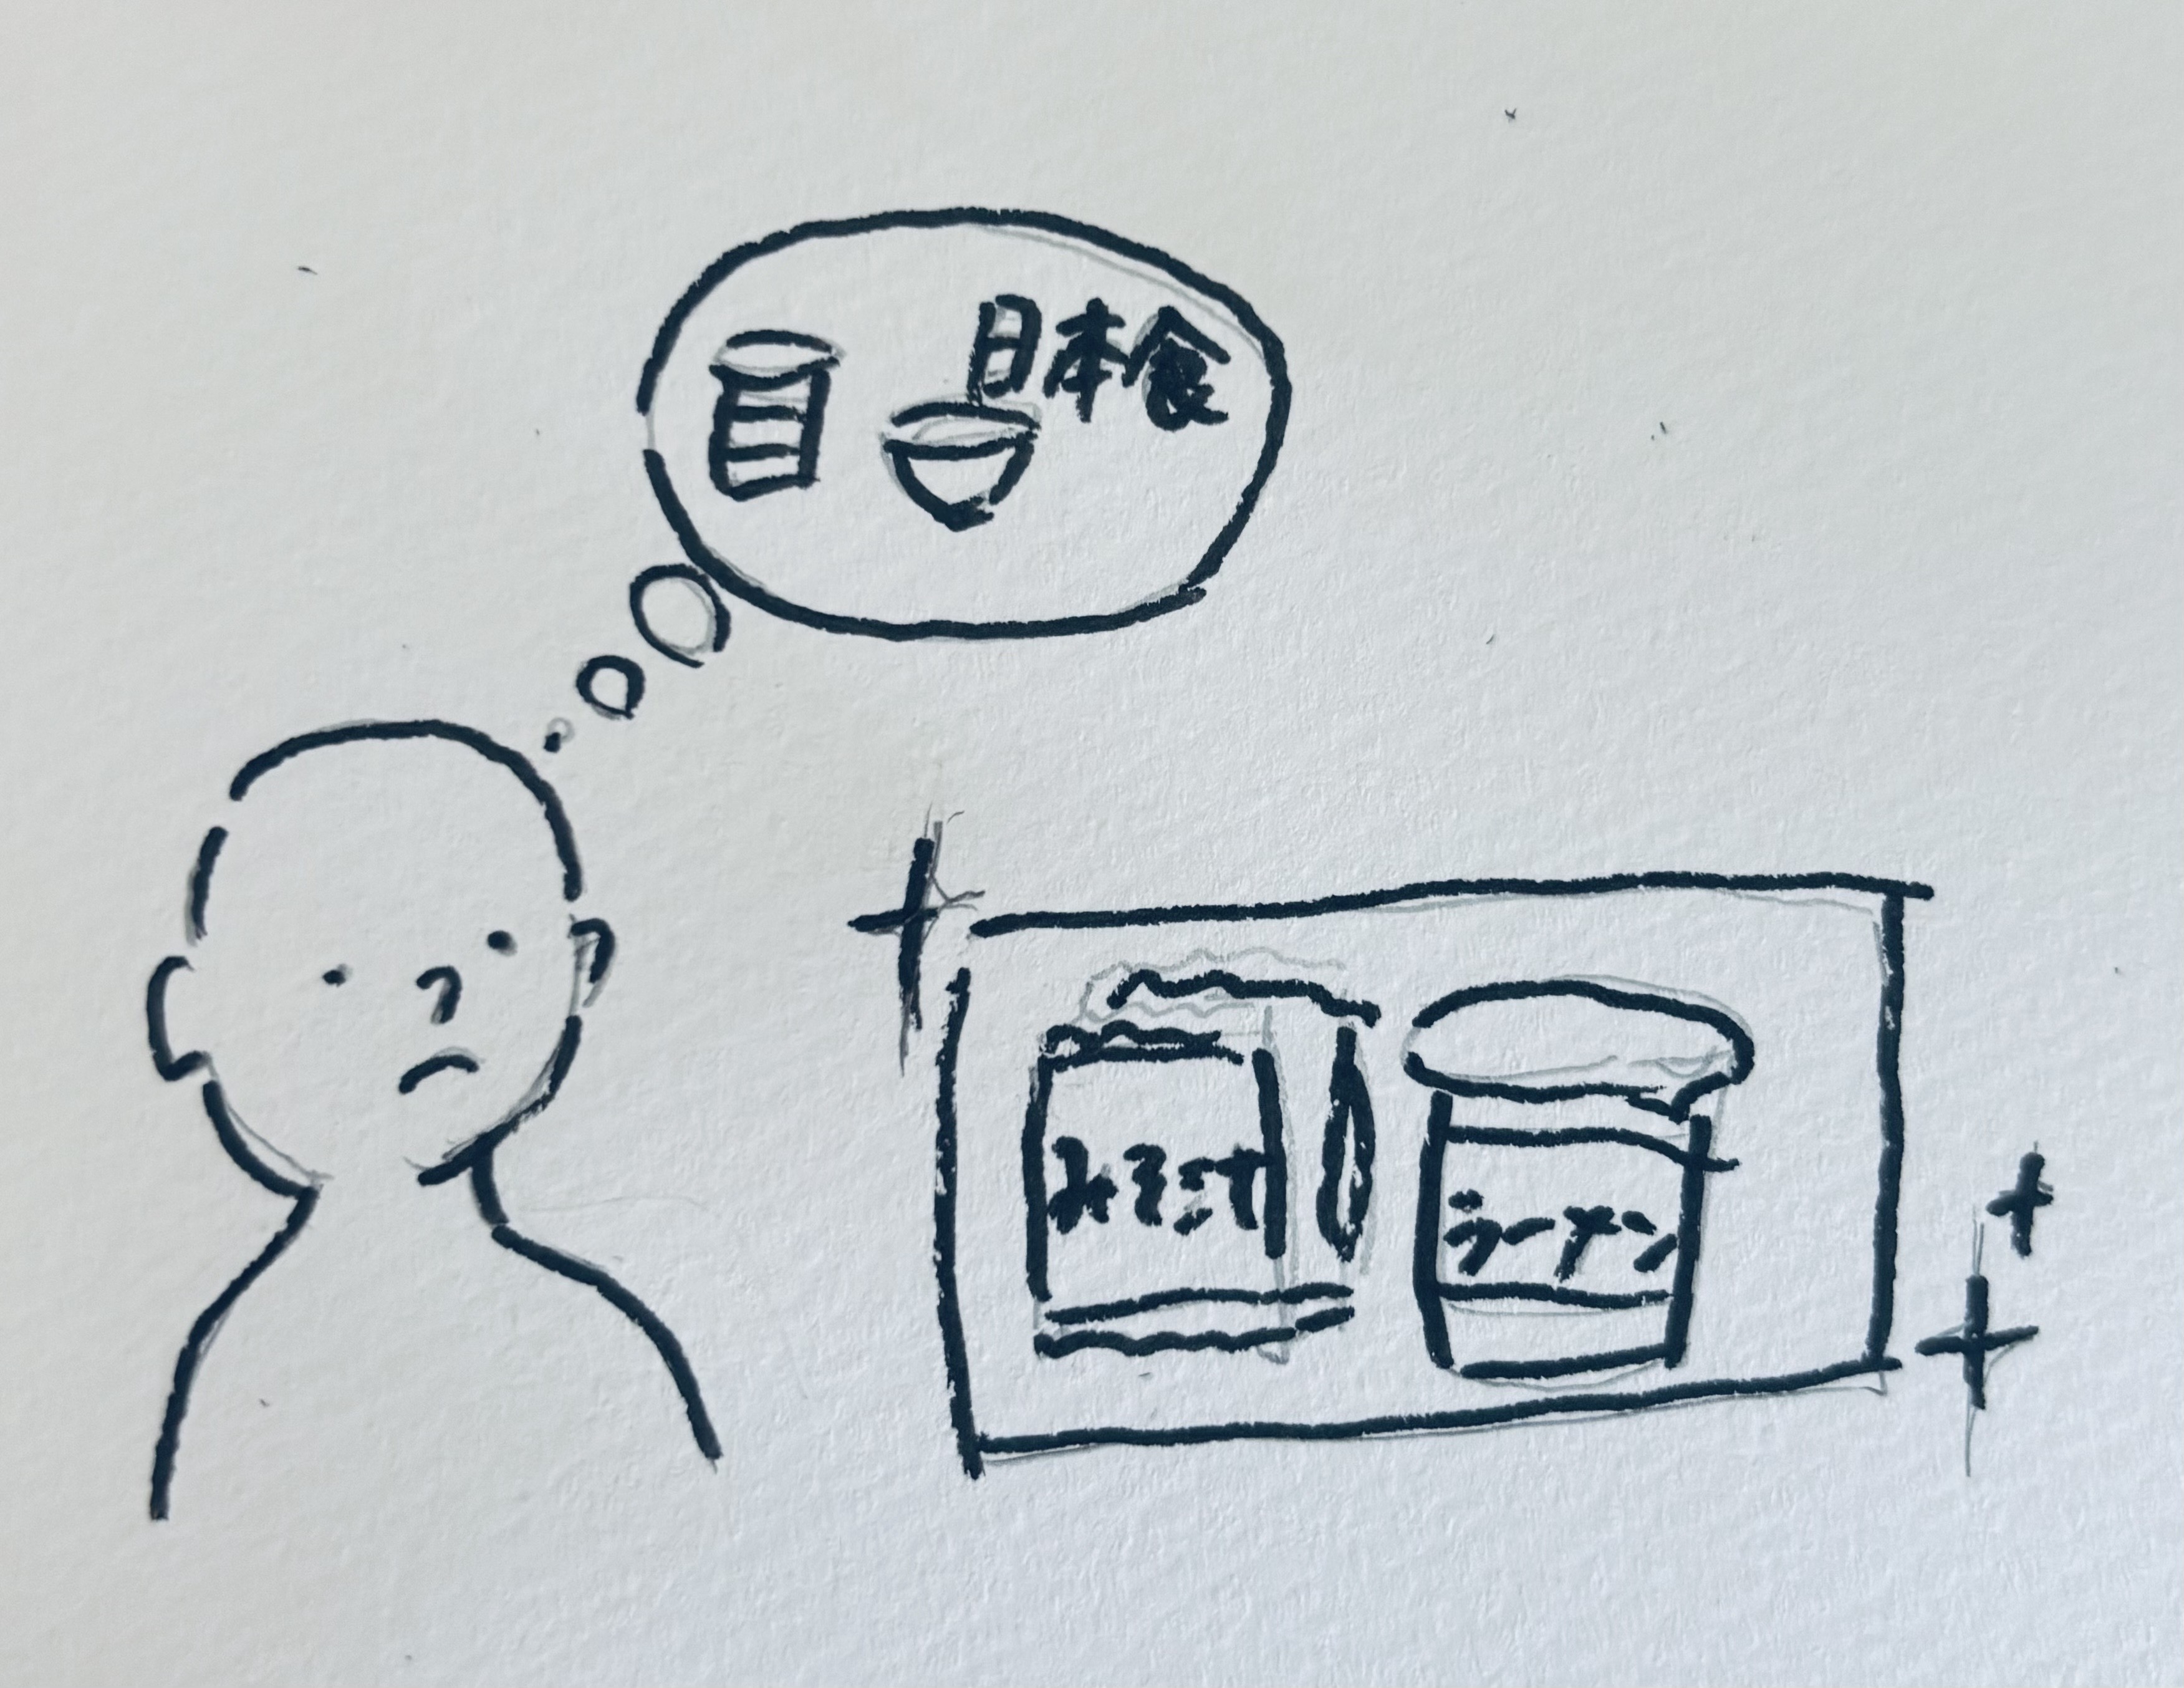 日本食
みそ汁
ラーメン